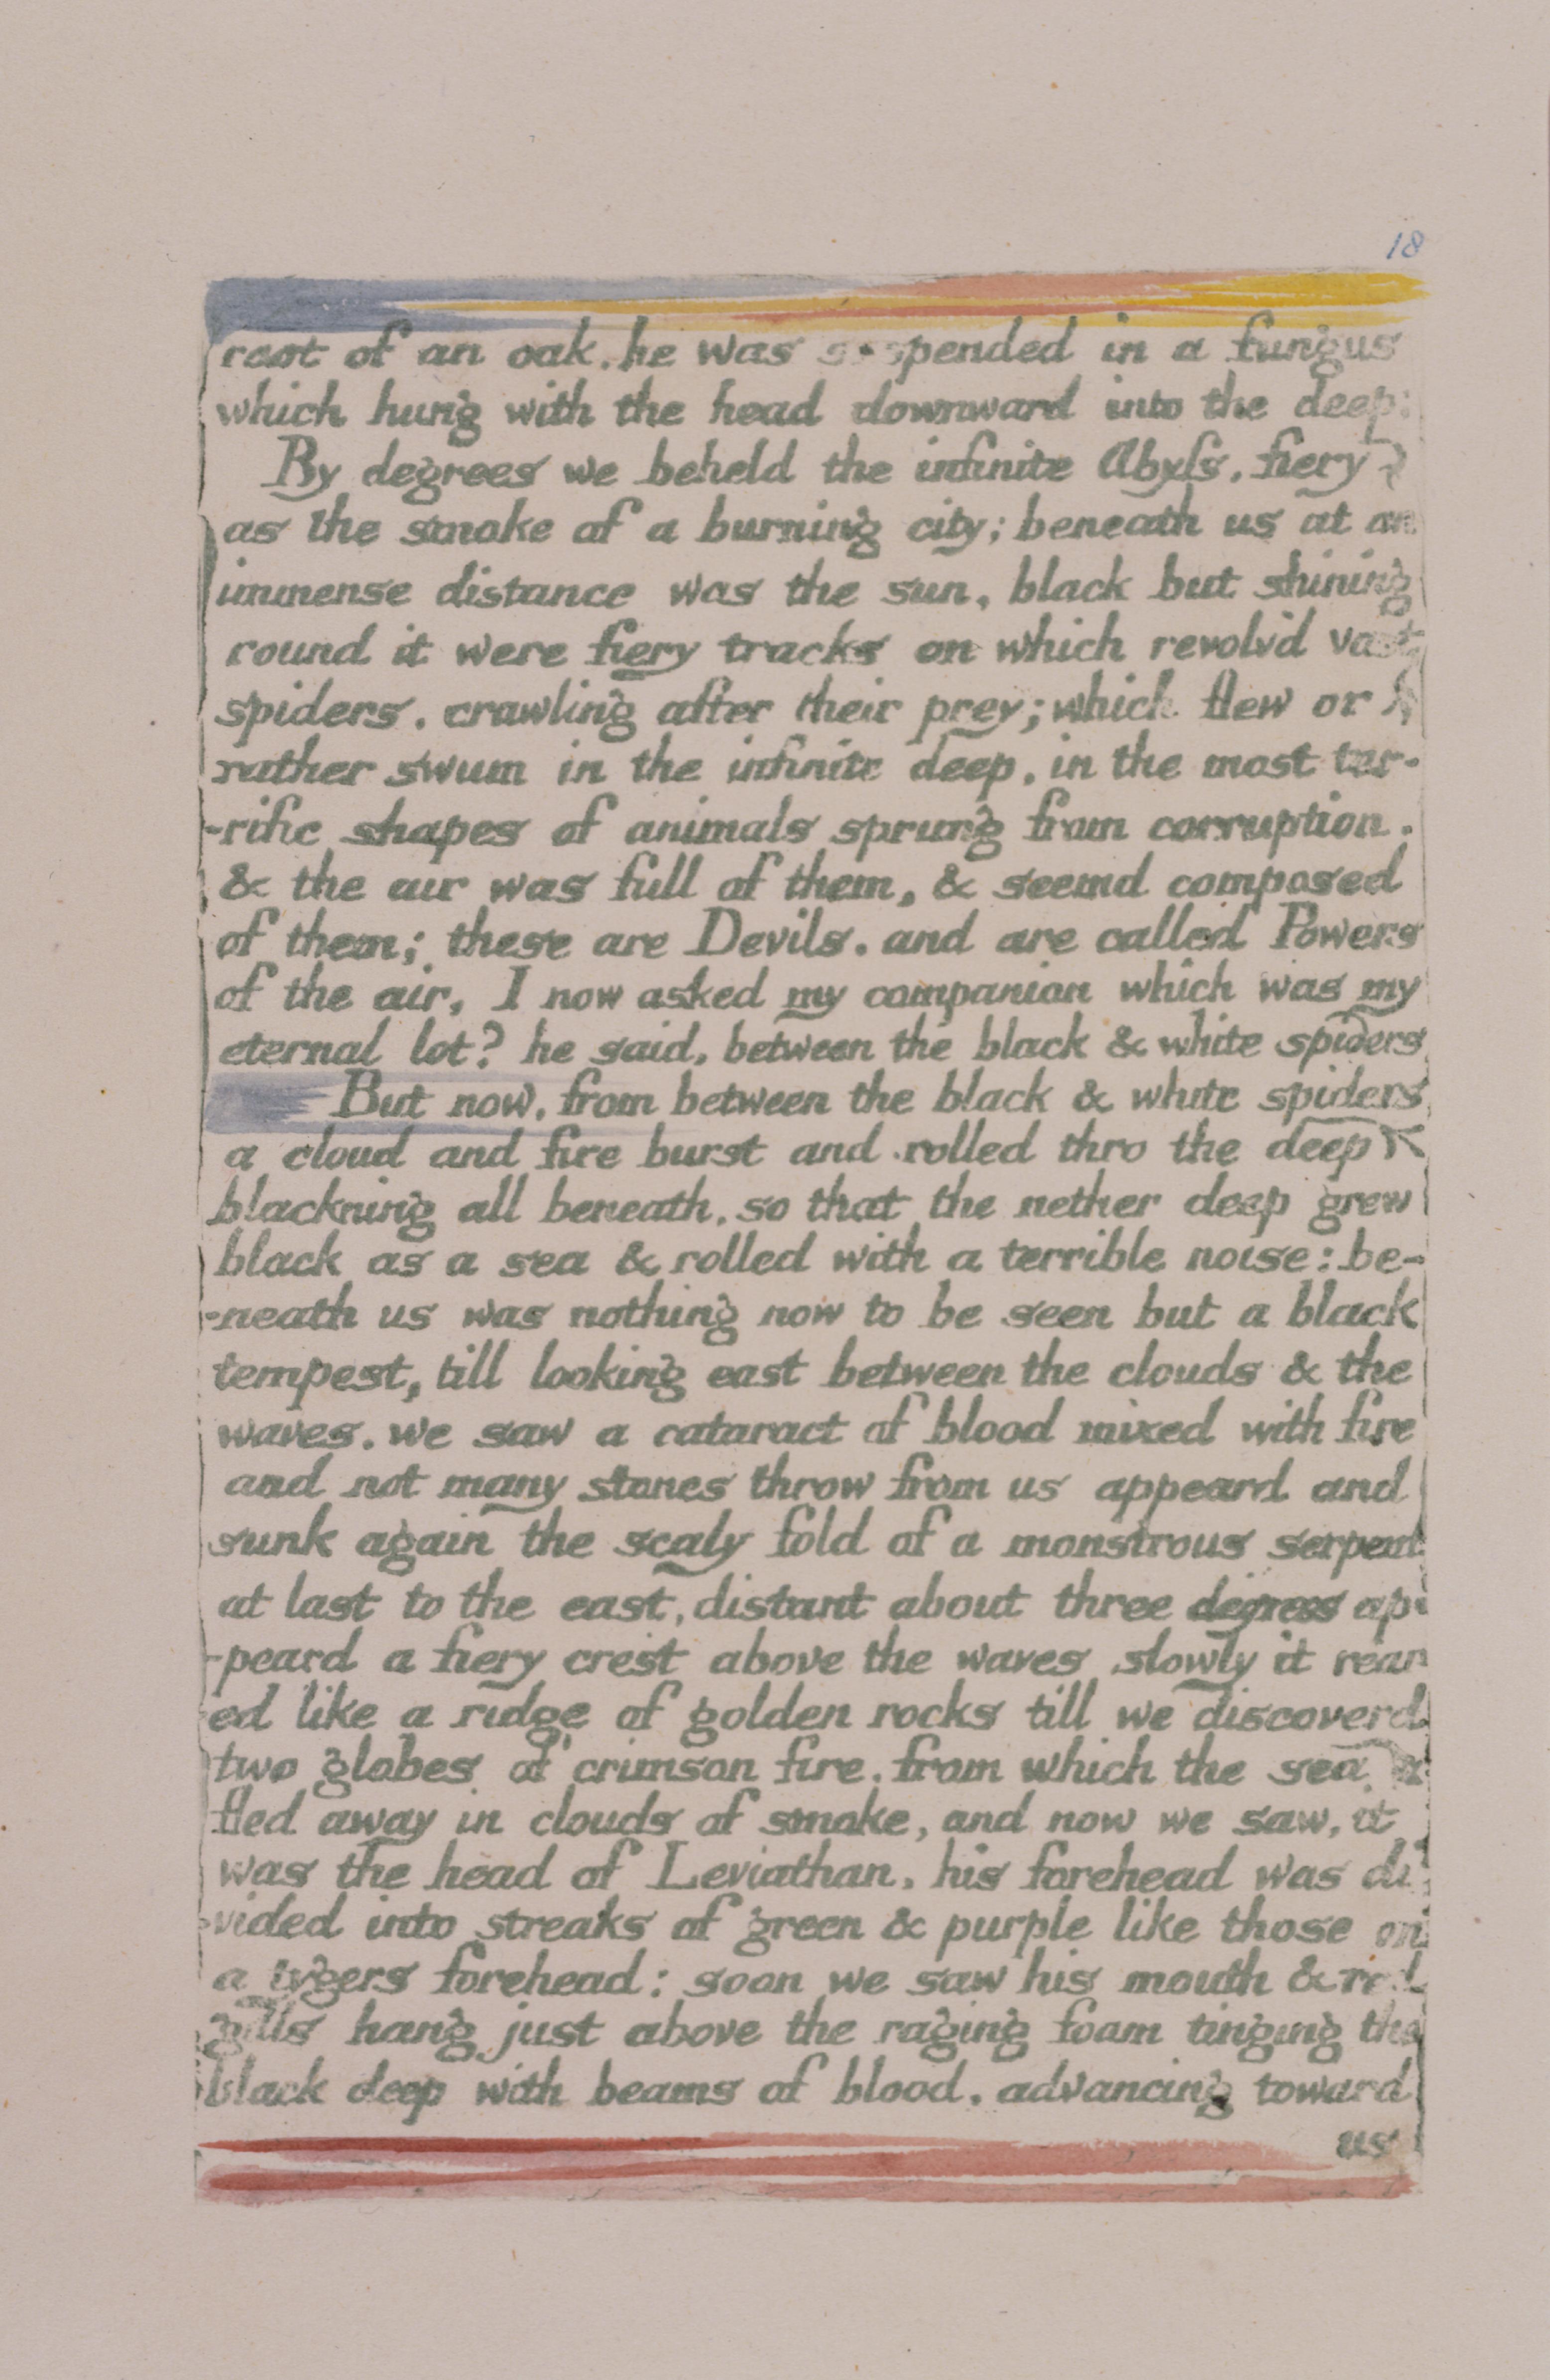 18
root of an oak. he was suspended in a fungus
which hung with the head downward into the deep:
By degrees we beheld the infinite Abyſs, fiery
as the smoke of a burning city; beneath us at an
immense distance was the sun, black but shining
round it were fiery tracks on which revolv'd vast
spiders, crawling after their prey; which flew or
rather swum in the infinite deep, in the most ter-
-rific shapes of animals sprung from corruption.
& the air was full of them, & seemd composed
of them; these are Devils. and are called Powers
of the air, I now asked my companion which was my
eternal lot? he said, between the black & white spiders
But now, from between the black & white spiders
a cloud and fire burst and rolled thro the deep
blackning all beneath, so that the nether deep grew
black as a sea & rolled with a terrible noise: be-
-neath us was nothing now to be seen but a black
tempest, till looking east between the clouds & the
waves, we saw a cataract of blood mixed with fire
and not many stones throw from us appeard and
sunk again the scaly fold of a monstrous serpent
at last to the east, distant about three degrees ap-
-peard a fiery crest above the waves slowly it rear
ed like a ridge of golden rocks till we discoverd
two globes of crimson fire. from which the sea
fled away in clouds of smoke, and now we saw, it
was the head of Leviathan, his forehead was di
-vided into streaks of green & purple like those on
a tygers forehead: soon we saw his mouth & red
gills hang just above the raging foam tinging the
black deep with beams of blood, advancing toward
us